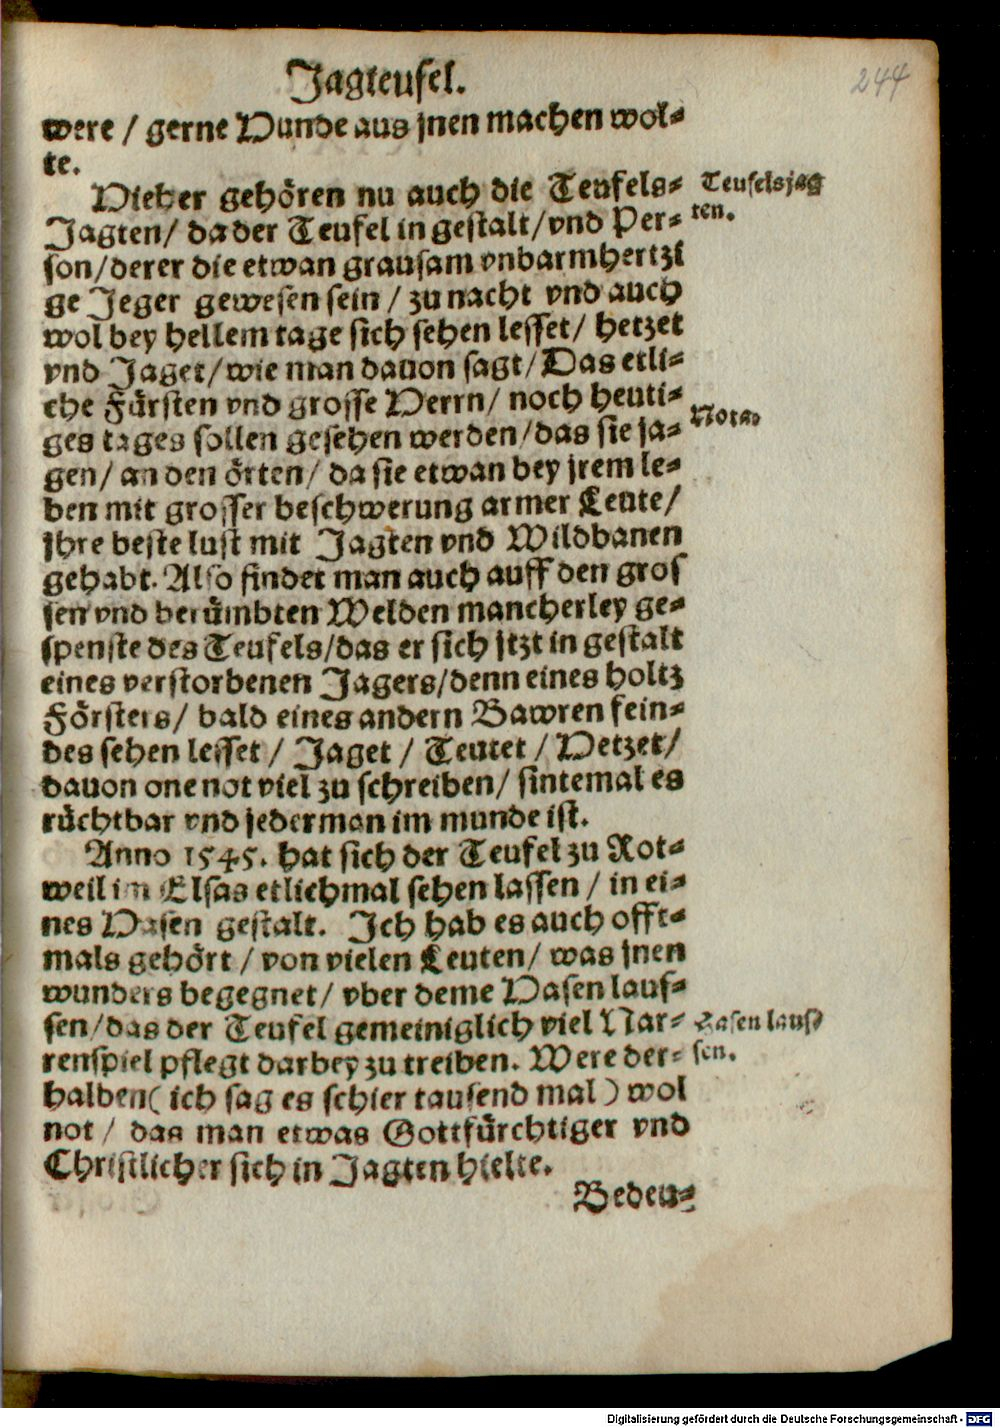 Jagteufel.
244
were / gerne Hunde aus jnen machen wol⸗
te.
Hieher gehören nu auch die Teufels⸗
Jagten / da der Teufel in gestalt / vnd Per⸗
son / derer die etwan grausam vnbarmhertzi
ge Jeger gewesen sein / zu nacht vnd auch
wol bey hellem tage sich sehen lesset / hetzet
vnd Jaget / wie man dauon sagt / Das etli⸗
che Fürsten vnd grosse Herrn / noch heuti⸗
ges tages sollen gesehen werden / das sie ja⸗
gen / an den örten / da sie etwan bey jrem le⸗
ben mit grosser beschwerung armer Leute /
jhre beste lust mit Jagten vnd Wildbanen
gehabt. Also findet man auch auff den gros
sen vnd berümbten Welden mancherley ge⸗
spenste des Teufels / das er sich jtzt in gestalt
eines verstorbenen Jagers / denn eines holtz
Försters / bald eines andern Bawren fein⸗
des sehen lesset / Jaget / Teutet / Hetzet /
dauon one not viel zu schreiben / sintemal es
rüchtbar vnd jederman im munde ist.
Anno 1545. hat sich der Teufel zu Rot⸗
weil im Elsas etlichmal sehen lassen / in ei⸗
nes Hasen gestalt. Ich hab es auch offt⸗
mals gehört / von vielen Leuten / was jnen
wunders begegnet / vber deme Hasen lauf⸗
sen / das der Teufel gemeiniglich viel Nar⸗
renspiel pflegt darbey zu treiben. Were der⸗
halben ( ich sag es schier tausend mal ) wol
not / das man etwas Gottfürchtiger vnd
Christlicher sich in Jagten hielte.
Beden⸗
Teufelsjag
ten.
Nota
Hasen lauf⸗
sen.
Digitalisierung gefördert durch die Deutsche Forschungsgemeinschaft - DFG